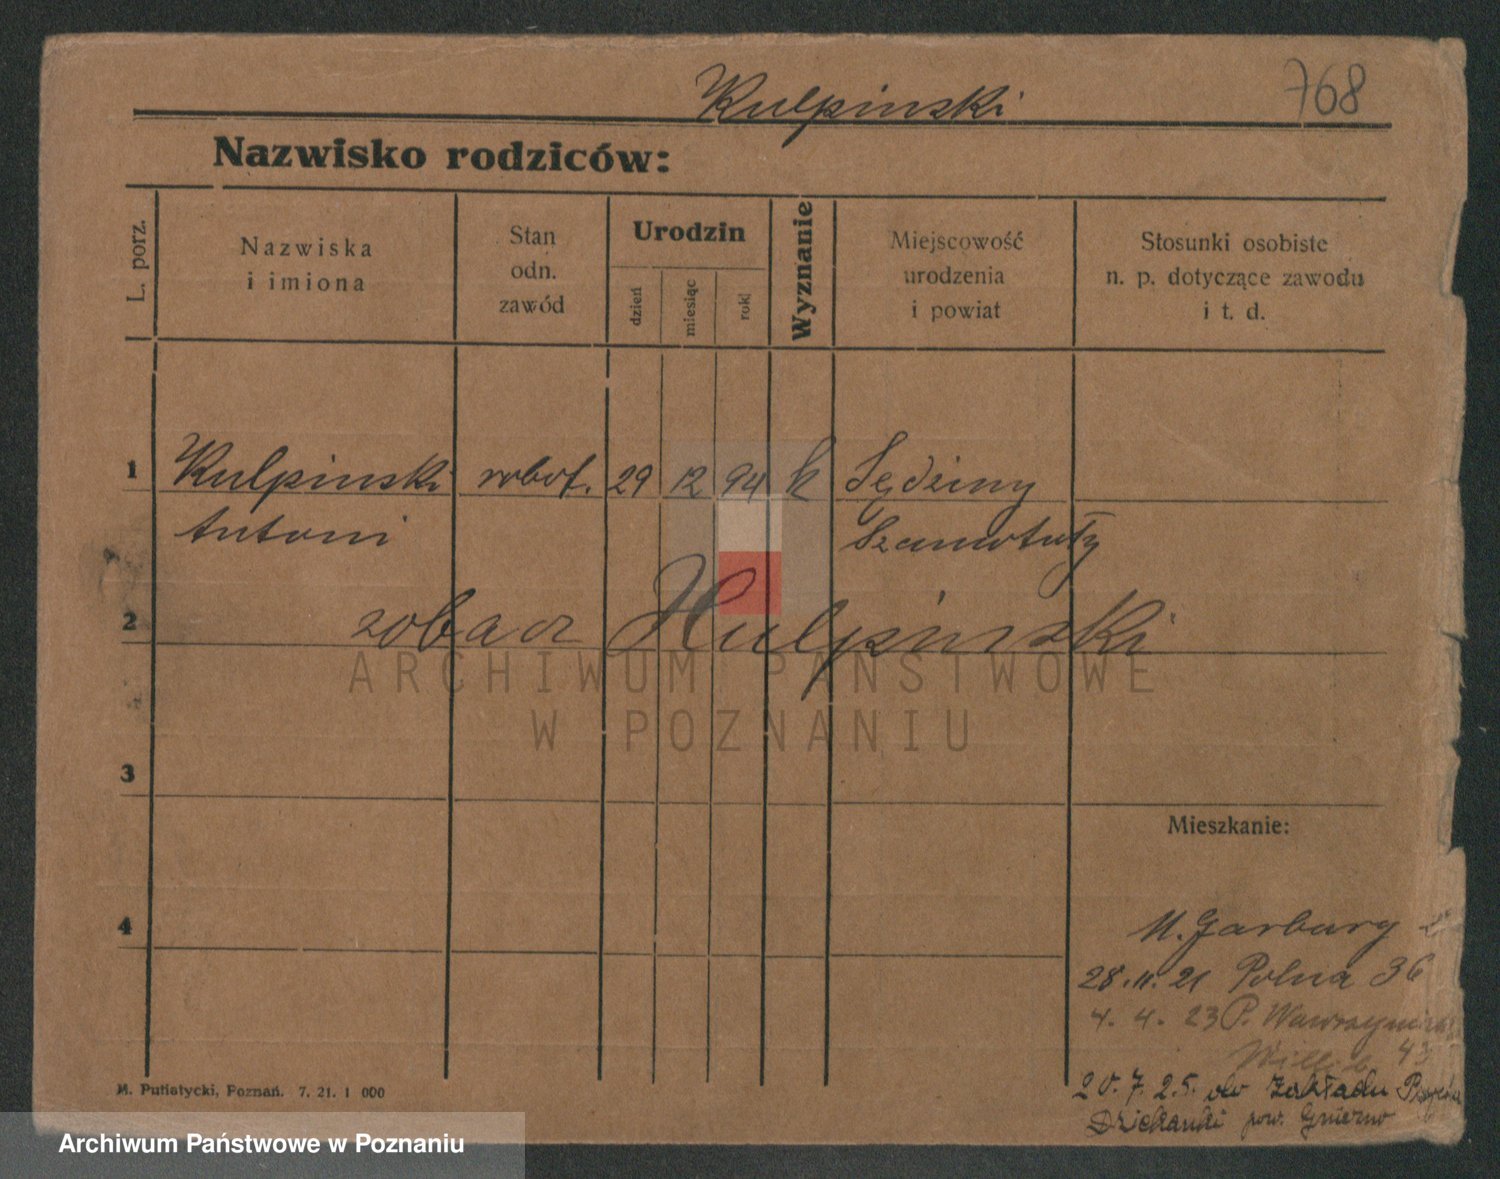 Kulpinski
768
Nazwisko rodziców:
L. porz.
Nazwiska
i imiona
Stan
odn.
zawód
Urodzin
dzień
miesiąc
rok
Wyznanie
Miejscowość
urodzenia
i powiat
Stosunki osobiste
n. p. dotyczące zawodu
i t. d.
1 Kulpinski robot. 29 12 94 k Sędziny
Antoni Szamotuły
2 zobacz Hulpinski
ARCHIWUM PAŃSTWOWE
W POZNANIU
3
Mieszkanie:
4
M. Garbary
28.11.21 Polna 36
4. 4. 23 P. Wawrzyniaka
43
20.7.25. do Zakładu
Dziekanki pow. Gniezno
M. Putiatycki, Poznań. 7. 21. 1 000
Archiwum Państwowe w Poznaniu